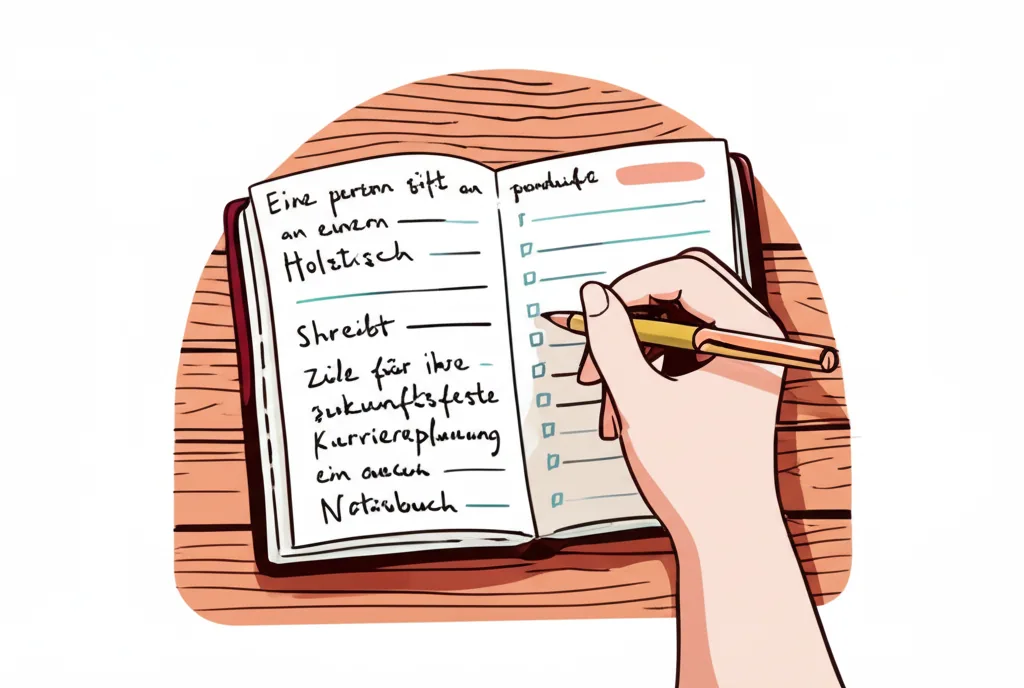 Eine perton sift an
an einem
Holztisch
Shreibt
Zile für ihre
zukunftsfeste
Karriereplanung
ein
Notizbuch